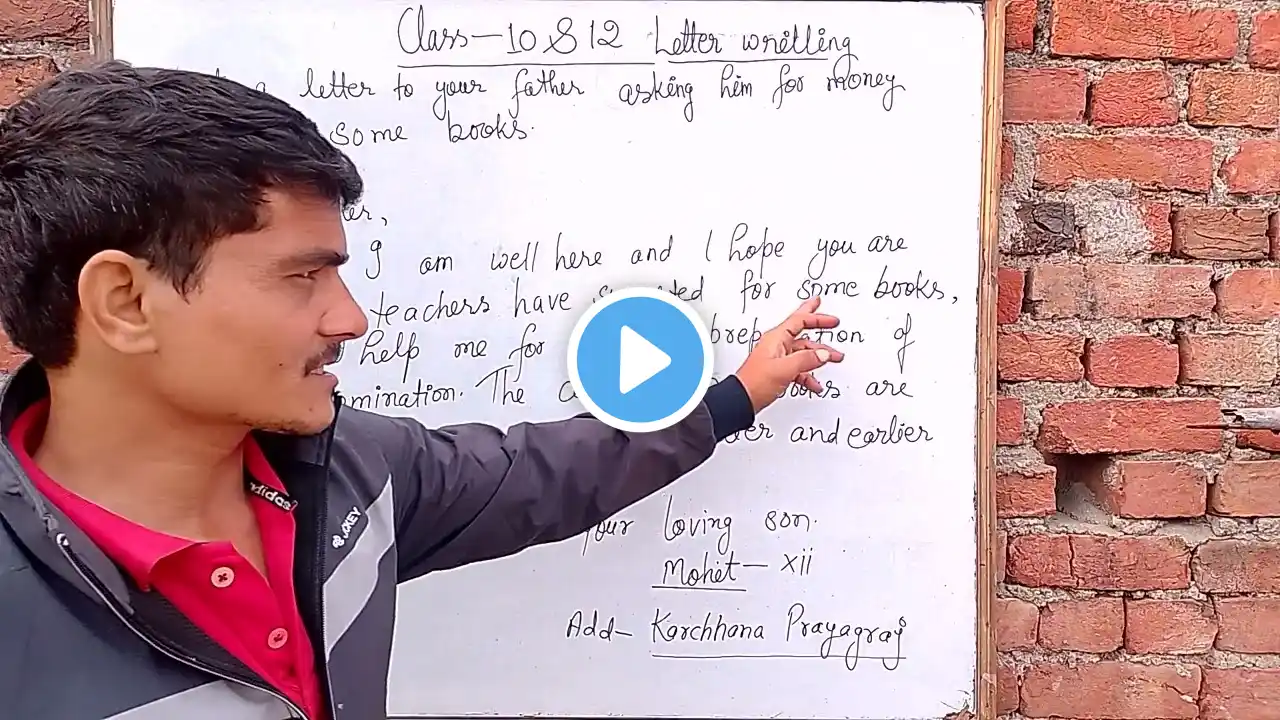 Class-10 & 12 Letter writing
a letter to your father asking him for money
some books.
er,
I am well here and I hope you are
teachers have for some books,
help me for of
mination. The books are
and earlier
your loving son.
Mohit - XII
Add- Karchhana Prayagraj
adidas
JOKEY